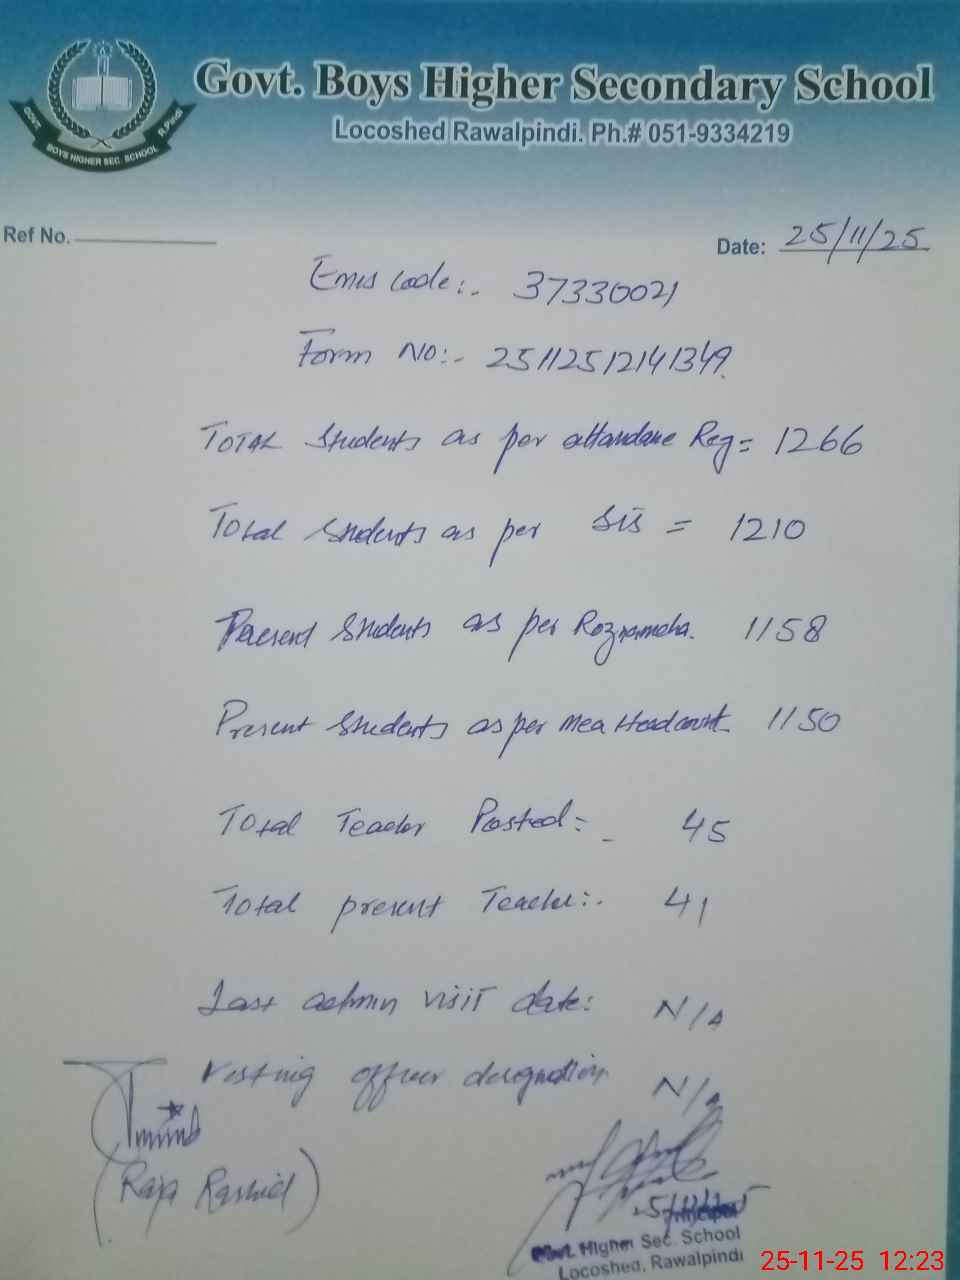 Govt. Boys Higher Secondary School
Locoshed Rawalpindi. Ph.# 051-9334219
GOVT. BOYS HIGHER SEC. SCHOOL R.Pindi
Ref No.
Date: 25/11/25
Emis Code:- 37330021
Form NO:- 25112512141349.
TOTAL Students as per attandane Reg = 1266
Total Students as per SiS = 1210
Present Students as per Roznamcha. 1158
Present Students as per Mea Headcount 1150
Total Teacher Posted:- 45
Total present Teacher:- 41
Last admin visit date: N/A
Visting officer designation N/A
(Raja Rashid)
Principal
Govt. Higher Sec. School
Locoshed, Rawalpindi
25-11-25 12:23